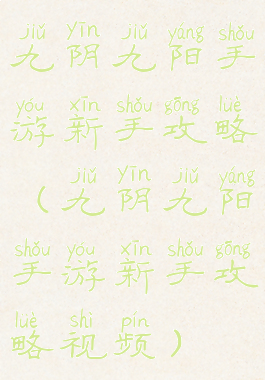 jiǔ yīn jiǔ yáng shǒu
九阴九阳手
yóu xīn shǒu gōng lüè
游新手攻略
jiǔ yīn jiǔ yáng
（九阴九阳
shǒu yóu xīn shǒu gōng
手游新手攻
lüè shì pín
略视频）